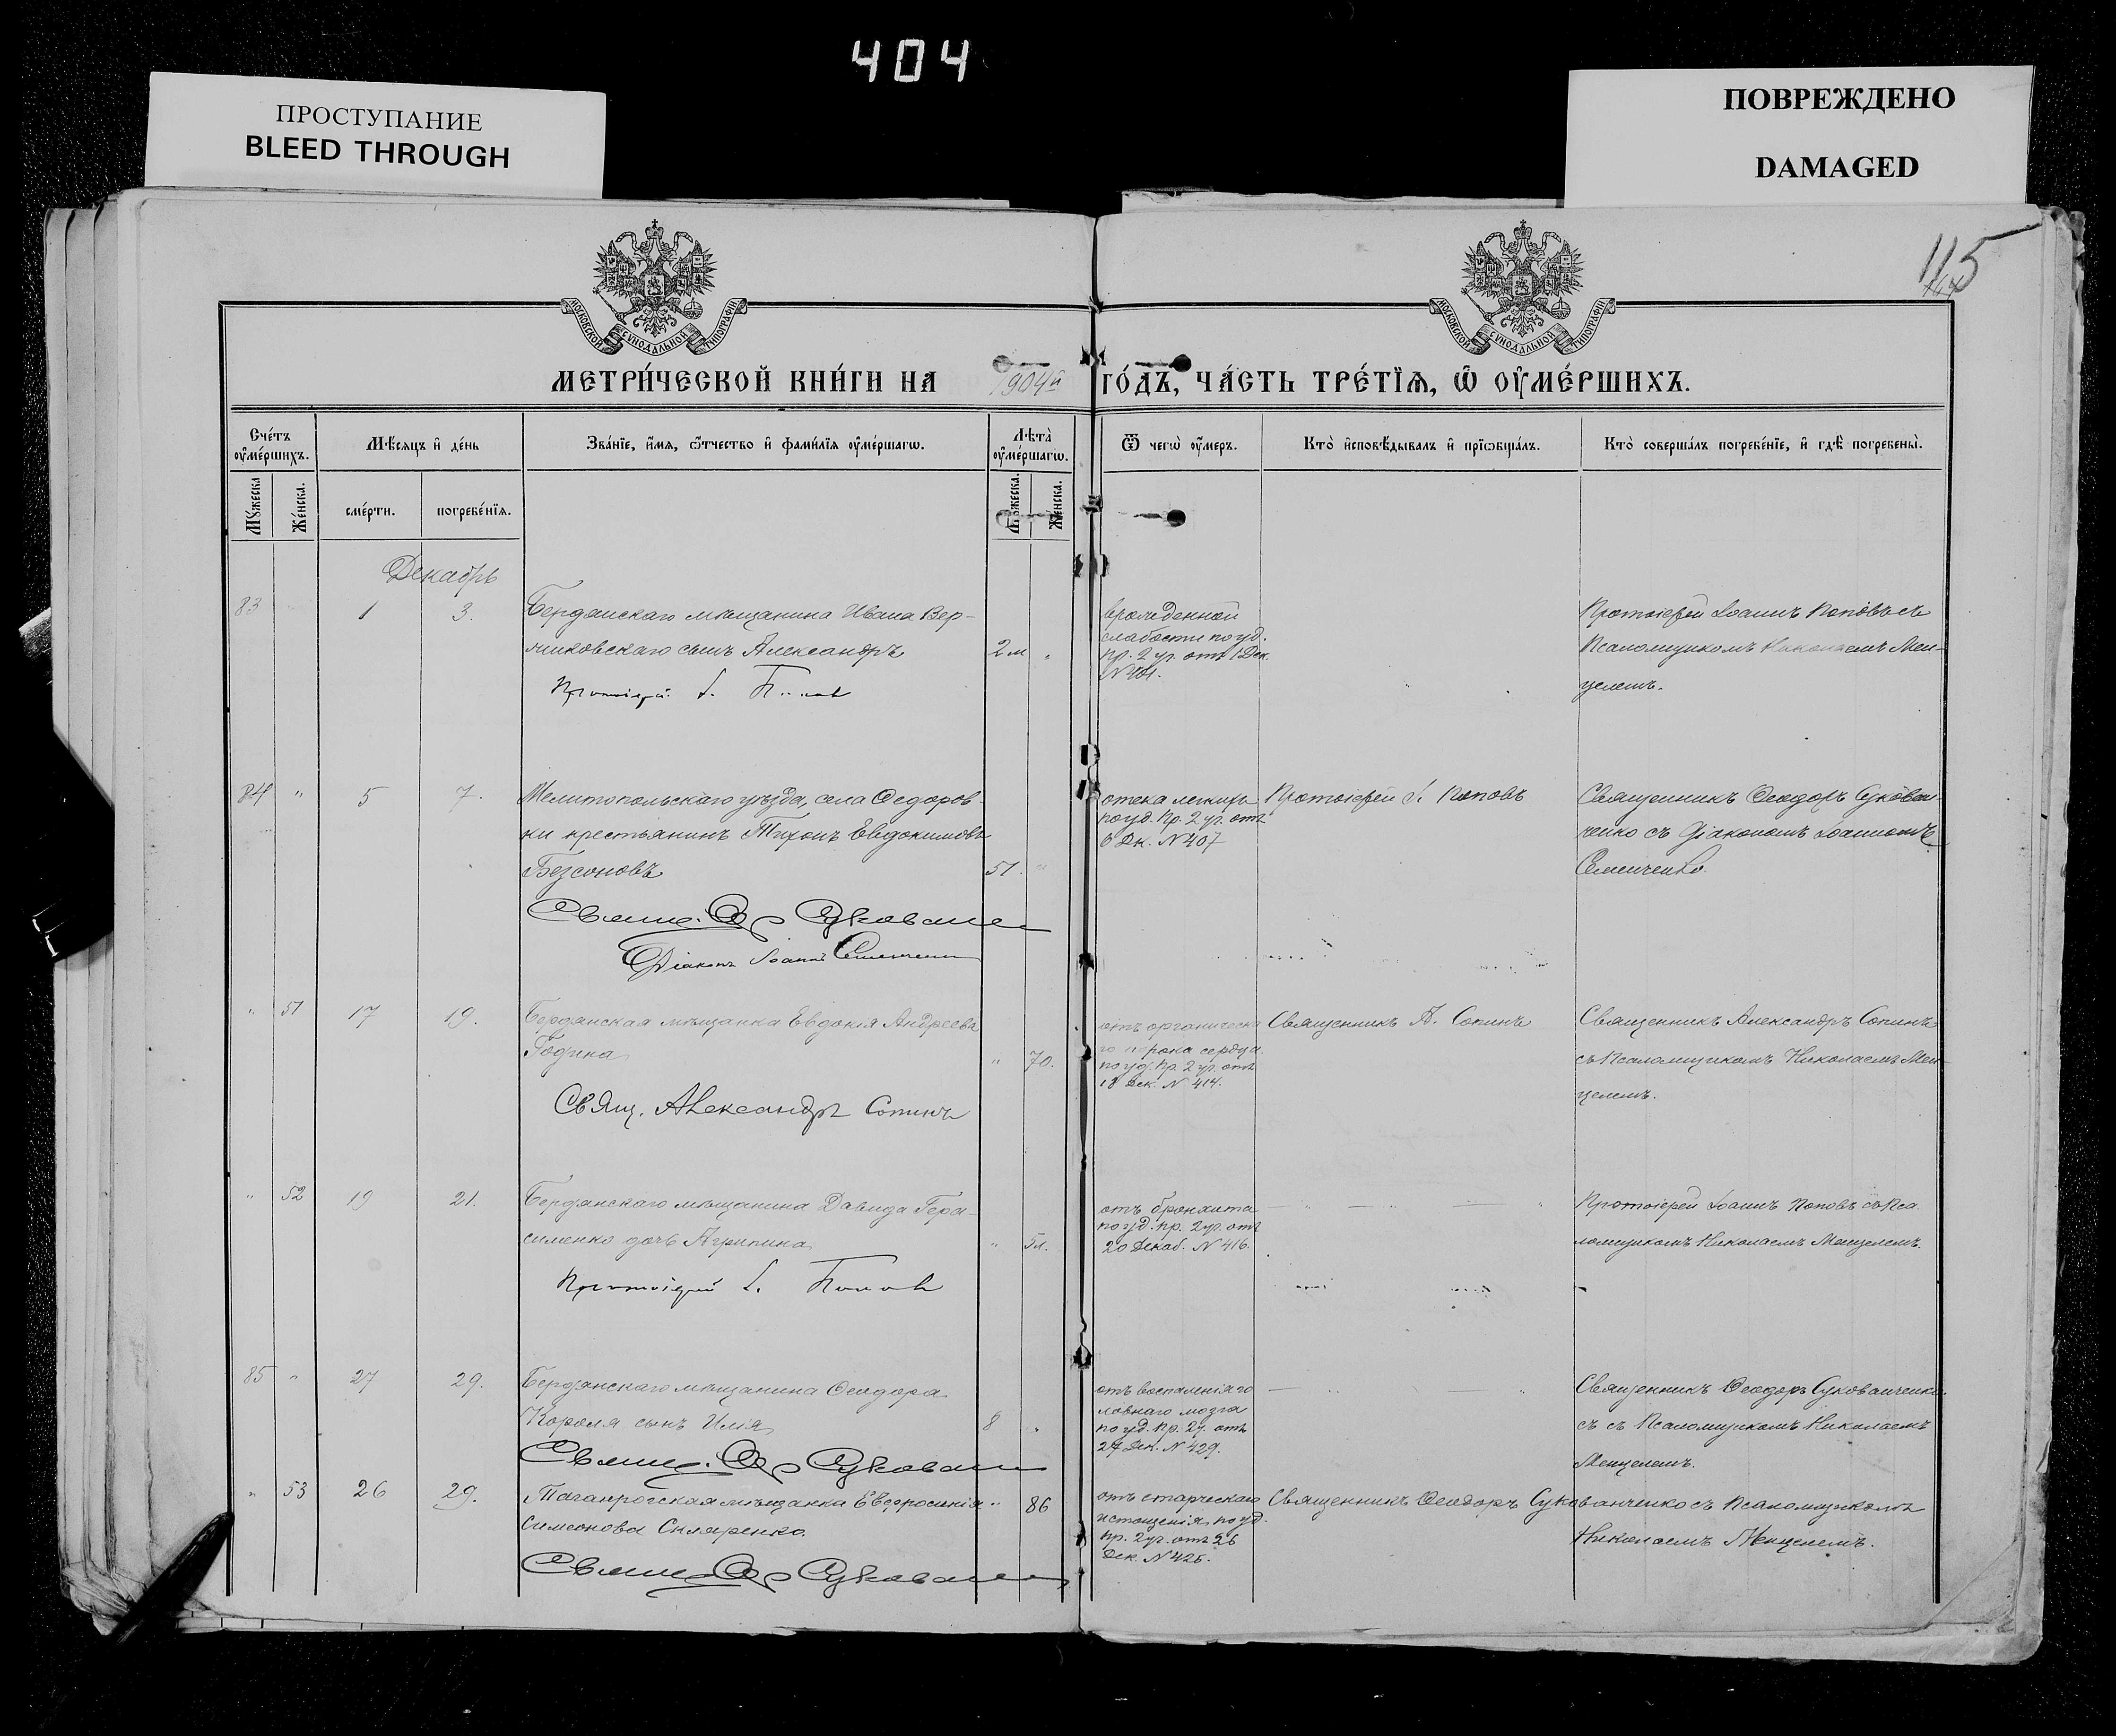 404
ПРОСТУПАНИЕ
BLEED THROUGH
ПОВРЕЖДЕНО
DAMAGED
115
МОСКОВСКОЙ СѴНОДАЛЬНОЙ ТИПОГРАФІИ
МОСКОВСКОЙ СѴНОДАЛЬНОЙ ТИПОГРАФІИ
МЕТРИ́ЧЕСКОЙ КНИ́ГИ НА 1904й ГО́ДЪ, ЧА́СТЬ ТРЕ́ТЇѦ, Ѡ҆ ОУ҆МЕ́РШИХЪ.
Сче́тъ оу҆ме́ршихъ.
Мѣ́сѧцъ и҆ де́нь
Зва́нїе, и҆́мѧ, ѻ҆́тчество и҆ фами́лїѧ оу҆ме́ршагѡ.
Лѣта̀ оу҆ме́ршагѡ.
Ѿ чегѡ̀ оу҆́меръ.
Кто̀ и҆сповѣ́дывалъ и҆ прїѡбща́лъ.
Кто̀ соверша́лъ погребе́нїе, и҆ гдѣ̀ погребены̀.
Мꙋ́жеска
Же́нска.
сме́рти.
погребе́нїѧ.
Мꙋ́жеска.
Же́нска.
Декабрь
83 1 3. Бердянскаго мѣщанина Ивана Вер-
никовскаго сынъ Александръ 2 м "
Протоіерей І. Поповъ
врожденной
слабости по уд.
пр. 2 уч. отъ 1 Дек.
N 401.
Протоіерей Іоаннъ Поповъ съ
Псаломщикомъ Николаемъ Мен-
целемъ.
84 " 5 7. Мелитопольскаго уѣзда, села Ѳедоров-
ки крестьянинъ Тихонъ Евдокимовъ
Безсоновъ 51.
Свящ. Ѳ Сукован
Діаконъ Іоаннъ Семенченко
отека легкихъ
по уд. Пр. 2 уч. отъ
6 Дк. N 407
Протоіерей І. Поповъ
Священникъ Ѳеодоръ Сукован-
ченко съ Діакономъ Іоанномъ
Семенченко
" 51 17 19. Бердянская мѣщанка Евдокія Андреева
Година " 70.
Свящ. Александръ Сопинъ
отъ органическа
го порока сердца
по уд. Пр. 2 уч. отъ
18 Дек. N 414.
Священникъ А. Сопинъ
Священникъ Александръ Сопинъ
съ Псаломщикомъ Николаемъ Мен-
целемъ.
" 52 19 21. Бердянскаго мѣщанина Давида Гера-
сименко дочь Агрипина " 5 л.
Протоіерей І. Поповъ
отъ бронхита
по уд. пр. 2 уч. отъ
20 Декаб. N 416.
Протоіерей Іоаннъ Поповъ съ Пса
ломщикомъ Николаемъ Менцелемъ.
85 " 27 29. Бердянскаго мѣщанина Ѳеодора
Короля сынъ Илія 8 "
Свящ. Ѳ Сукован
отъ воспаленія го
ловнаго мозга
по уд. Пр. 2 у. отъ
27 Дек. N 429.
Священникъ Ѳеодоръ Сукованченко
съ съ Псаломщикомъ Николаемъ
Менцелемъ.
" 53 26 29. Таганрогская мѣщанка Евфросинія
Симеонова Скляренко. " 86
Свящ. Ѳ Сукован
отъ старческаго
истощенія по уд.
пр. 2 уч. отъ 26
Дек. N 425.
Священникъ Ѳеодоръ Сукованченко съ Псаломщикомъ
Николаемъ Менцелемъ.